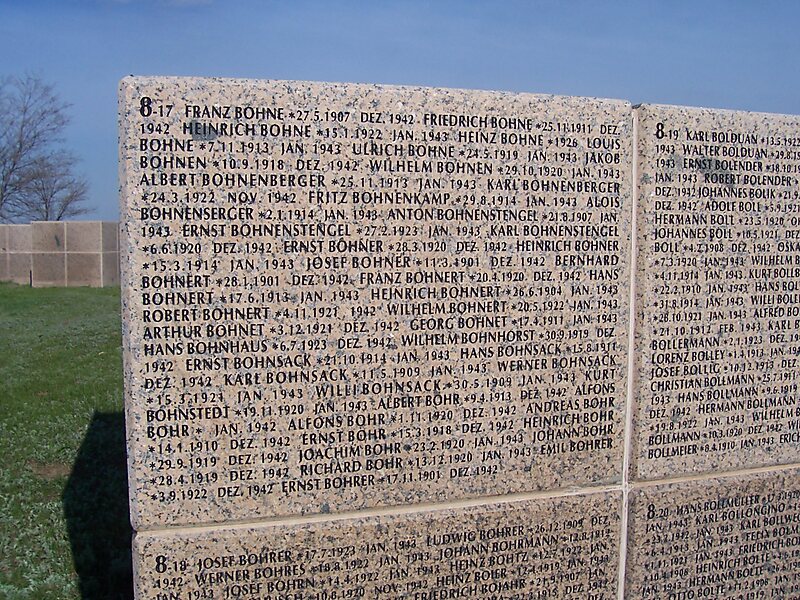 8-17 FRANZ BOHNE *27.5.1907 DEZ. 1942 FRIEDRICH BOHNE *25.11.1911 DEZ.
1942 HEINRICH BOHNE *15.1.1922 JAN. 1943 HEINZ BOHNE *1926 LOUIS
BOHNE *7.11.1913 JAN. 1943 ULRICH BOHNE *24.5.1919 JAN. 1943 JAKOB
BOHNEN *10.9.1918 DEZ. 1942 WILHELM BOHNEN *29.10.1920 JAN. 1943
ALBERT BOHNENBERGER *25.11.1913 JAN. 1943 KARL BOHNENBERGER
*24.3.1922 NOV. 1942 FRITZ BOHNENKAMP *29.8.1914 JAN. 1943 ALOIS
BOHNENSERGER *2.1.1914 JAN. 1943 ANTON BOHNENSTENGEL *21.8.1907 JAN.
1943 ERNST BOHNENSTENGEL *27.2.1923 JAN. 1943 KARL BOHNENSTENGEL
*6.6.1920 DEZ. 1942 ERNST BÖHNER *28.3.1920 DEZ. 1942 HEINRICH BÖHNER
*15.3.1914 JAN. 1943 JOSEF BÖHNER *11.3.1901 DEZ. 1942 BERNHARD
BOHNERT *28.1.1901 DEZ. 1942 FRANZ BOHNERT *20.4.1920 DEZ. 1942 HANS
BOHNERT *17.6.1913 JAN. 1943 HEINRICH BOHNERT *26.6.1904 JAN. 1943
ROBERT BOHNERT *4.11.1921 1942 WILHELM BOHNERT *20.5.1922 JAN. 1943
ARTHUR BOHNET *3.12.1921 DEZ. 1942 GEORG BOHNET *17.4.1911 JAN. 1943
HANS BOHNHAUS *6.7.1923 DEZ. 1942 WILHELM BOHNHORST *30.9.1919 DEZ.
1942 ERNST BOHNSACK *21.10.1914 JAN. 1943 HANS BOHNSACK *15.8.1911
DEZ. 1942 KARL BOHNSACK *11.5.1909 JAN. 1943 WERNER BOHNSACK
*15.3.1921 JAN. 1943 WILLI BOHNSACK *30.5.1909 JAN. 1943 KURT
BOHNSTEDT *19.11.1920 JAN. 1943 ALBERT BÖHR *9.4.1913 DEZ. 1942 ALFONS
BOHR * JAN. 1942 ALFONS BÖHR *1.11.1920 DEZ. 1942 ANDREAS BÖHR
*14.1.1910 DEZ. 1942 ERNST BÖHR *15.3.1918 DEZ. 1942 HEINRICH BÖHR
*29.9.1919 DEZ. 1942 JOACHIM BOHR *23.2.1920 JAN. 1943 JOHANN BOHR
*28.4.1919 DEZ. 1942 RICHARD BOHR *13.12.1920 JAN. 1943 EMIL BOHRER
*3.9.1922 DEZ. 1942 ERNST BOHRER *17.11.1901 DEZ. 1942
8-18 JOSEF BOHRER *17.7.1923 JAN. 1943 LUDWIG BOHRER *26.12.1909 DEZ.
1942 WERNER BOHRES *18.8.1922 JAN. 1943 JOHANN BOHRMANN *12.8.1919
JAN. 1943 JOSEF BOHRN *14.4.1922 JAN. 1943 HEINZ BOHTZ *12.7.1922 JAN.
*10.8.1920 NOV. 1942 HEINZ BOIER *12.4.1919 JAN. 1943
FRIEDRICH BOJAHR *21.9.1907 JAN.
8-19 KARL BOLDUAN *13.5.1922
1943 WALTER BOLDUAN *29.8
1943 ERNST BOLENDER *38.10
JAN. 1943 ROBERT BOLENDER
DEZ. 1942 JOHANNES BOLIK
DEZ. 1942 ADOLF BOLL *5.9.1921
HERMANN BOLL *23.5.1920
JOHANNES BOLL *10.5.1921 DEZ.
BOLL *4.2.1908 DEZ. 1942 OSKA
*7.3.1920 JAN. 1943 WILHELM
*4.11.1914 JAN. 1943 KURT BOLL
*22.2.1910 JAN. 1943 HANS BOL
*31.8.1914 JAN. 1943 WILLI BOLLE
*26.10.1921 JAN. 1943 ALFRED BO
*21.10.1912 FEB. 1943 KARL
BOLLERMANN *2.1.1923 DEZ.
LORENZ BOLLEY *1.4.1913 JAN.
JOSEF BOLLIG *10.12.1913 DEZ.
CHRISTIAN BOLLMANN *25.7.1911
1943 HANS BOLLMANN *9.6.1919
DEZ. 1942 HERMANN BOLLMANN
*19.8.1922 JAN. 1943 WILHELM
BOLLMANN *10.3.1920 DEZ. 1942
BOLLMEIER *8.4.1910 JAN. 1943 ERIC
8-20 HANS BOLLMÜLLER *17.3.1920
JAN. 1943 KARL BOLLONGINO
*23.2.1942 JAN. 1943 KARL BOLLWE
*6.4.1913 JAN. 1943 FELIX BOLM
*1.11.1921 JAN. 1943 FRIEDRICH BO
*10.4.1908 HEINRICH BOLTE
JAN. 1943 HERMANN BOLTE
OTTO BOLTE